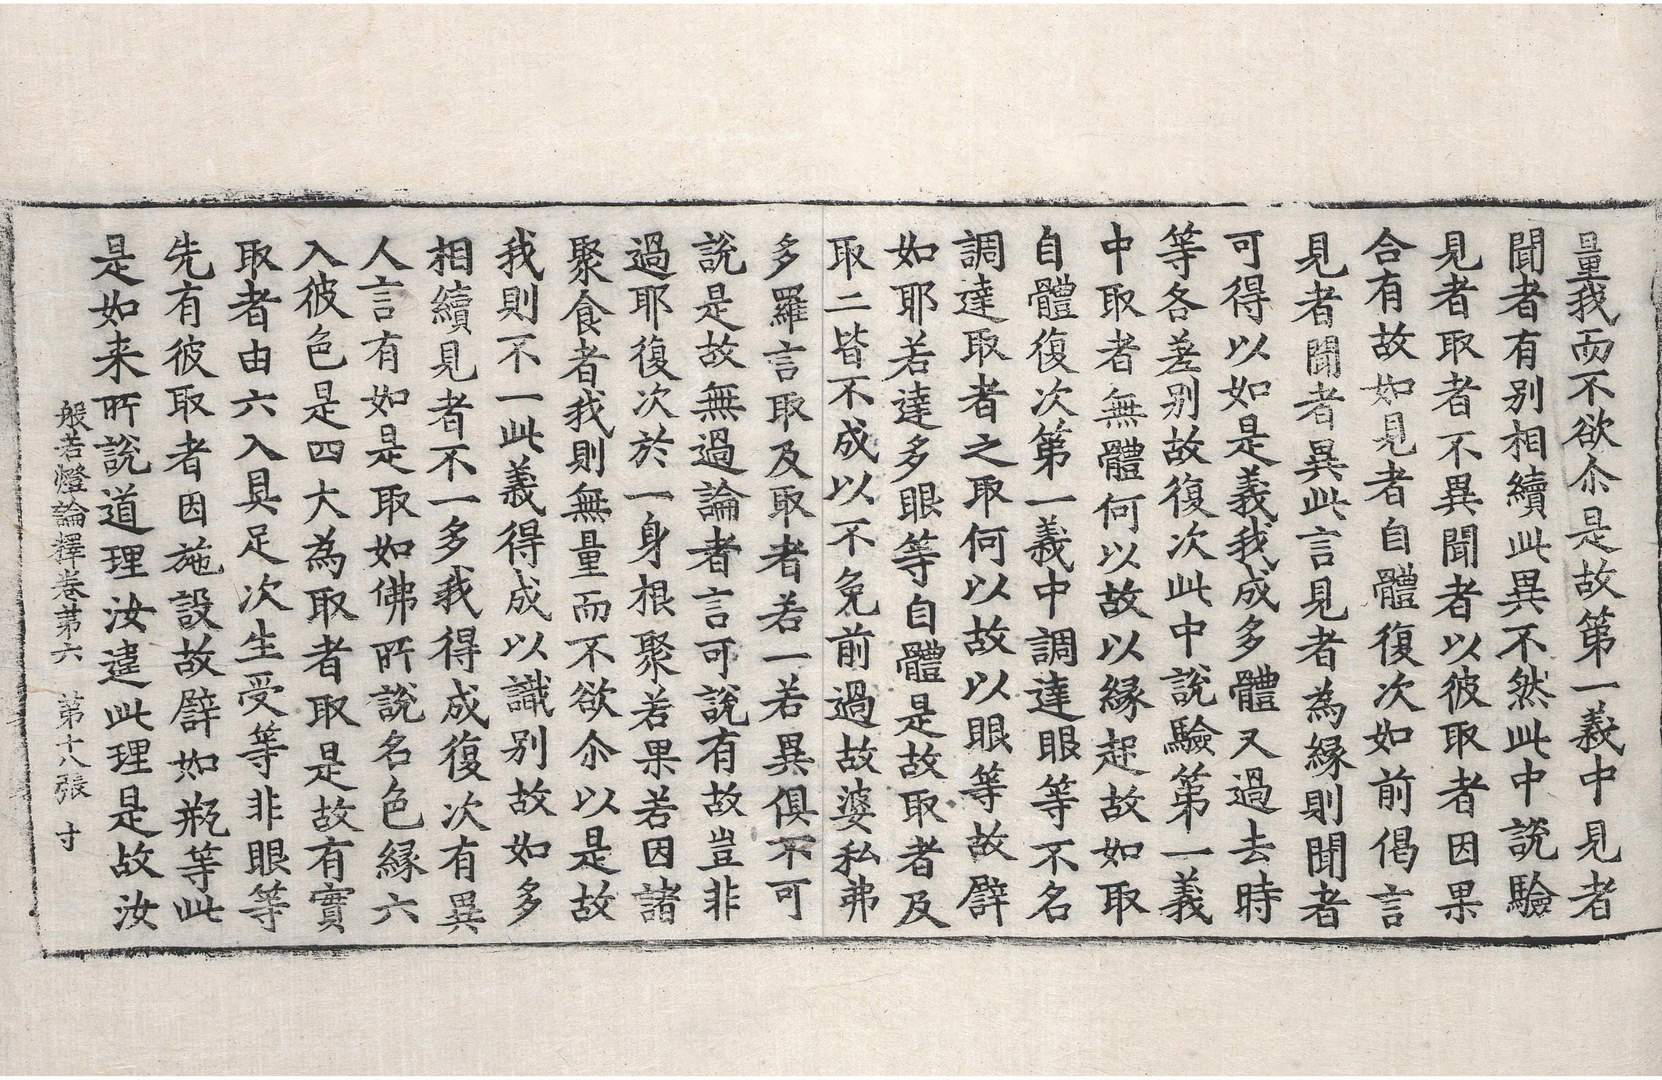 量我而不欲尒是故第一義中見者
聞者有別相續此異不然此中說驗
見者取者不異聞者以彼取者因果
合有故如見者自體復次如前偈言
見者聞者異此言見者為緣則聞者
可得以如是義我成多體又過去時
等各差別故復次此中說驗第一義
中取者無體何以故以緣起故如取
自體復次第一義中調達眼等不名
調達取者之取何以故以眼等故譬
如耶若達多眼等自體是故取者及
取二皆不成以不免前過故婆私弗
多羅言取及取者若一若異俱不可
說是故無過論者言可說有故豈非
過耶復次於一身根聚若果若因諸
聚食者我則無量而不欲尒以是故
我則不一此義得成以識別故如多
相續見者不一多我得成復次有異
人言有如是取如佛所說名色緣六
入彼色是四大為取者取是故有實
取者由六入具足次生受等非眼等
先有彼取者因施設故譬如瓶等此
是如来所說道理汝違此理是故汝
般若燈論釋卷第六 第十八張 寸